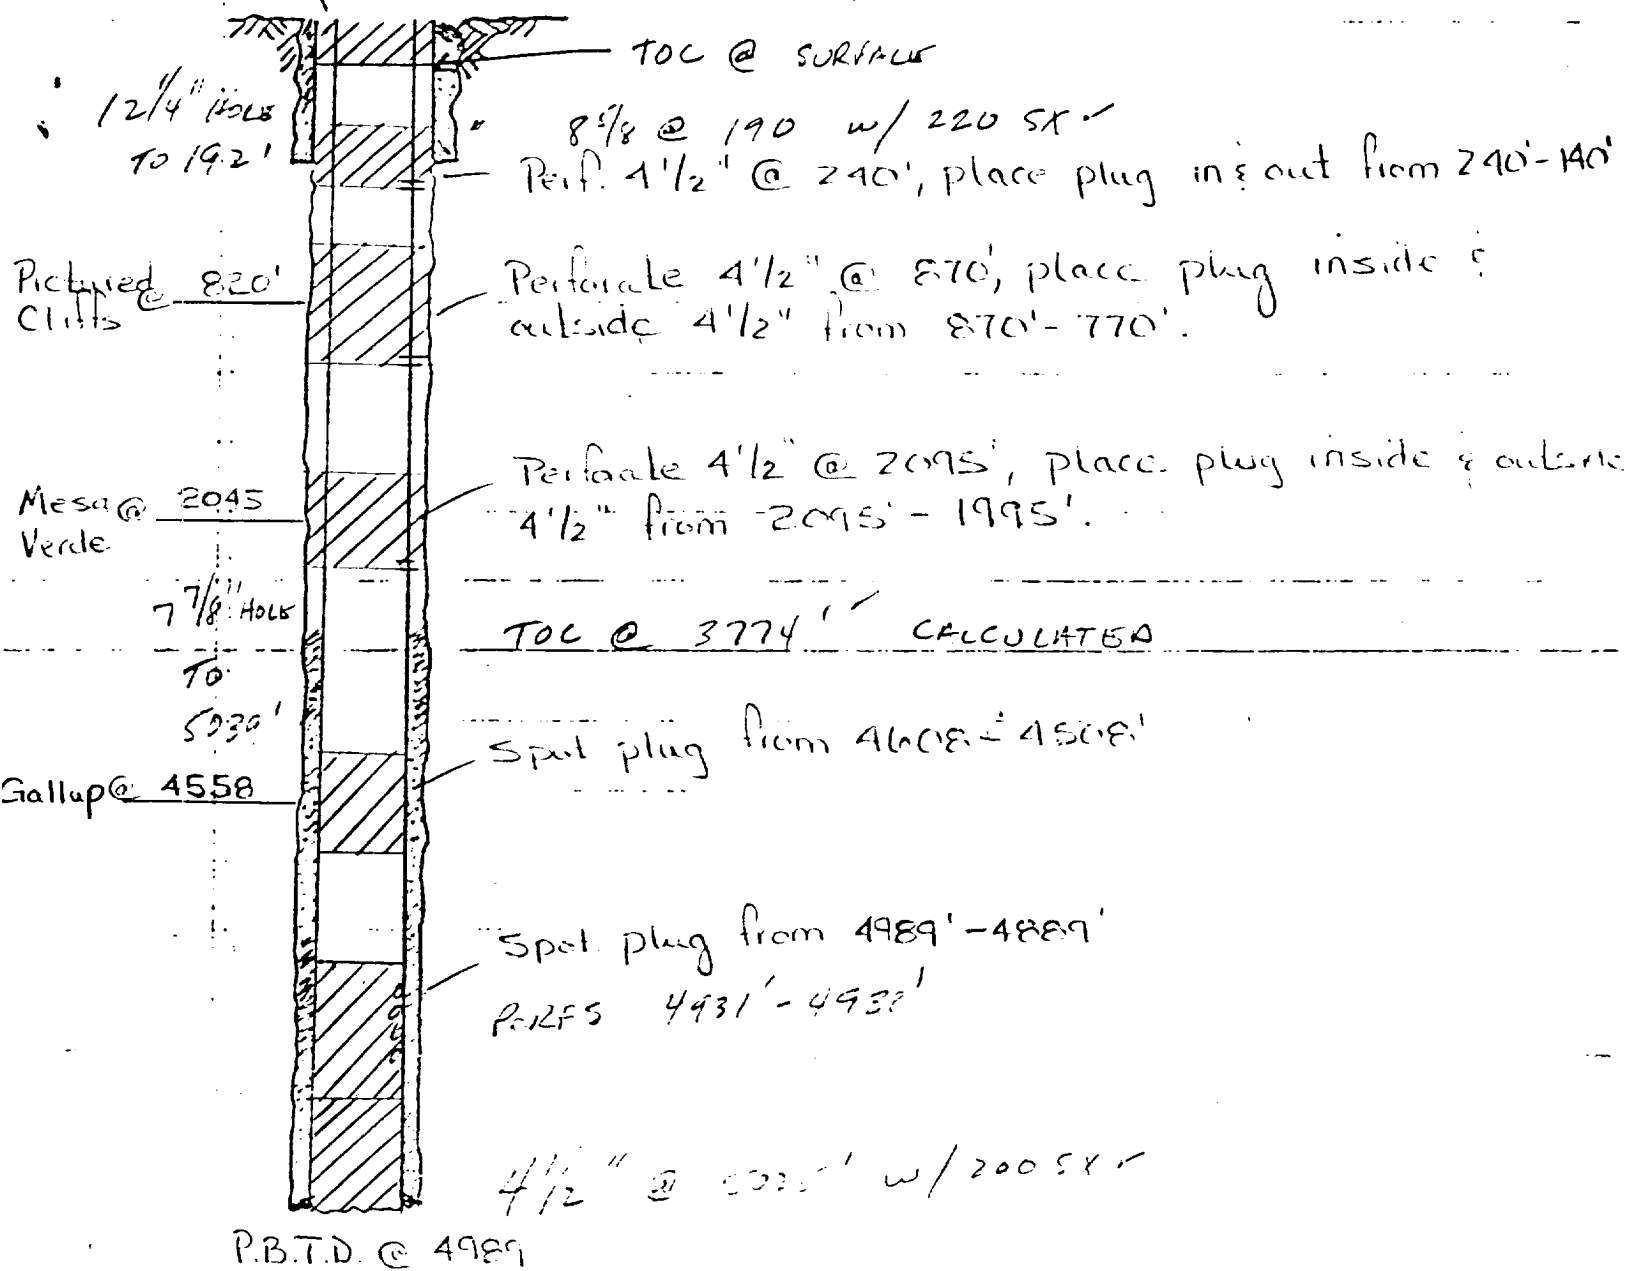 TOC @ SURFACE
12 1/4" HOLE
TO 192'
8 5/8 @ 190 w/ 220 SX ✓
Perf. 4 1/2" @ 240', place plug in & out from 240'-140'
Pictured @ 820'
Cliffs
Perforate 4 1/2" @ 870', place plug inside &
outside 4 1/2" from 870'-770'.
Mesa @ 2045
Verde
Perforate 4 1/2" @ 2095', place plug inside & outside
4 1/2" from 2095'-1995'.
7 7/8" HOLE
TO
TOC @ 3774' ✓ CALCULATED
Spot plug from 4608'-4508'
Gallup @ 4558
Spot plug from 4989'-4889'
PERFS 4931'-
4 1/2" @ w/ 200 SX ✓
P.B.T.D. @ 4989